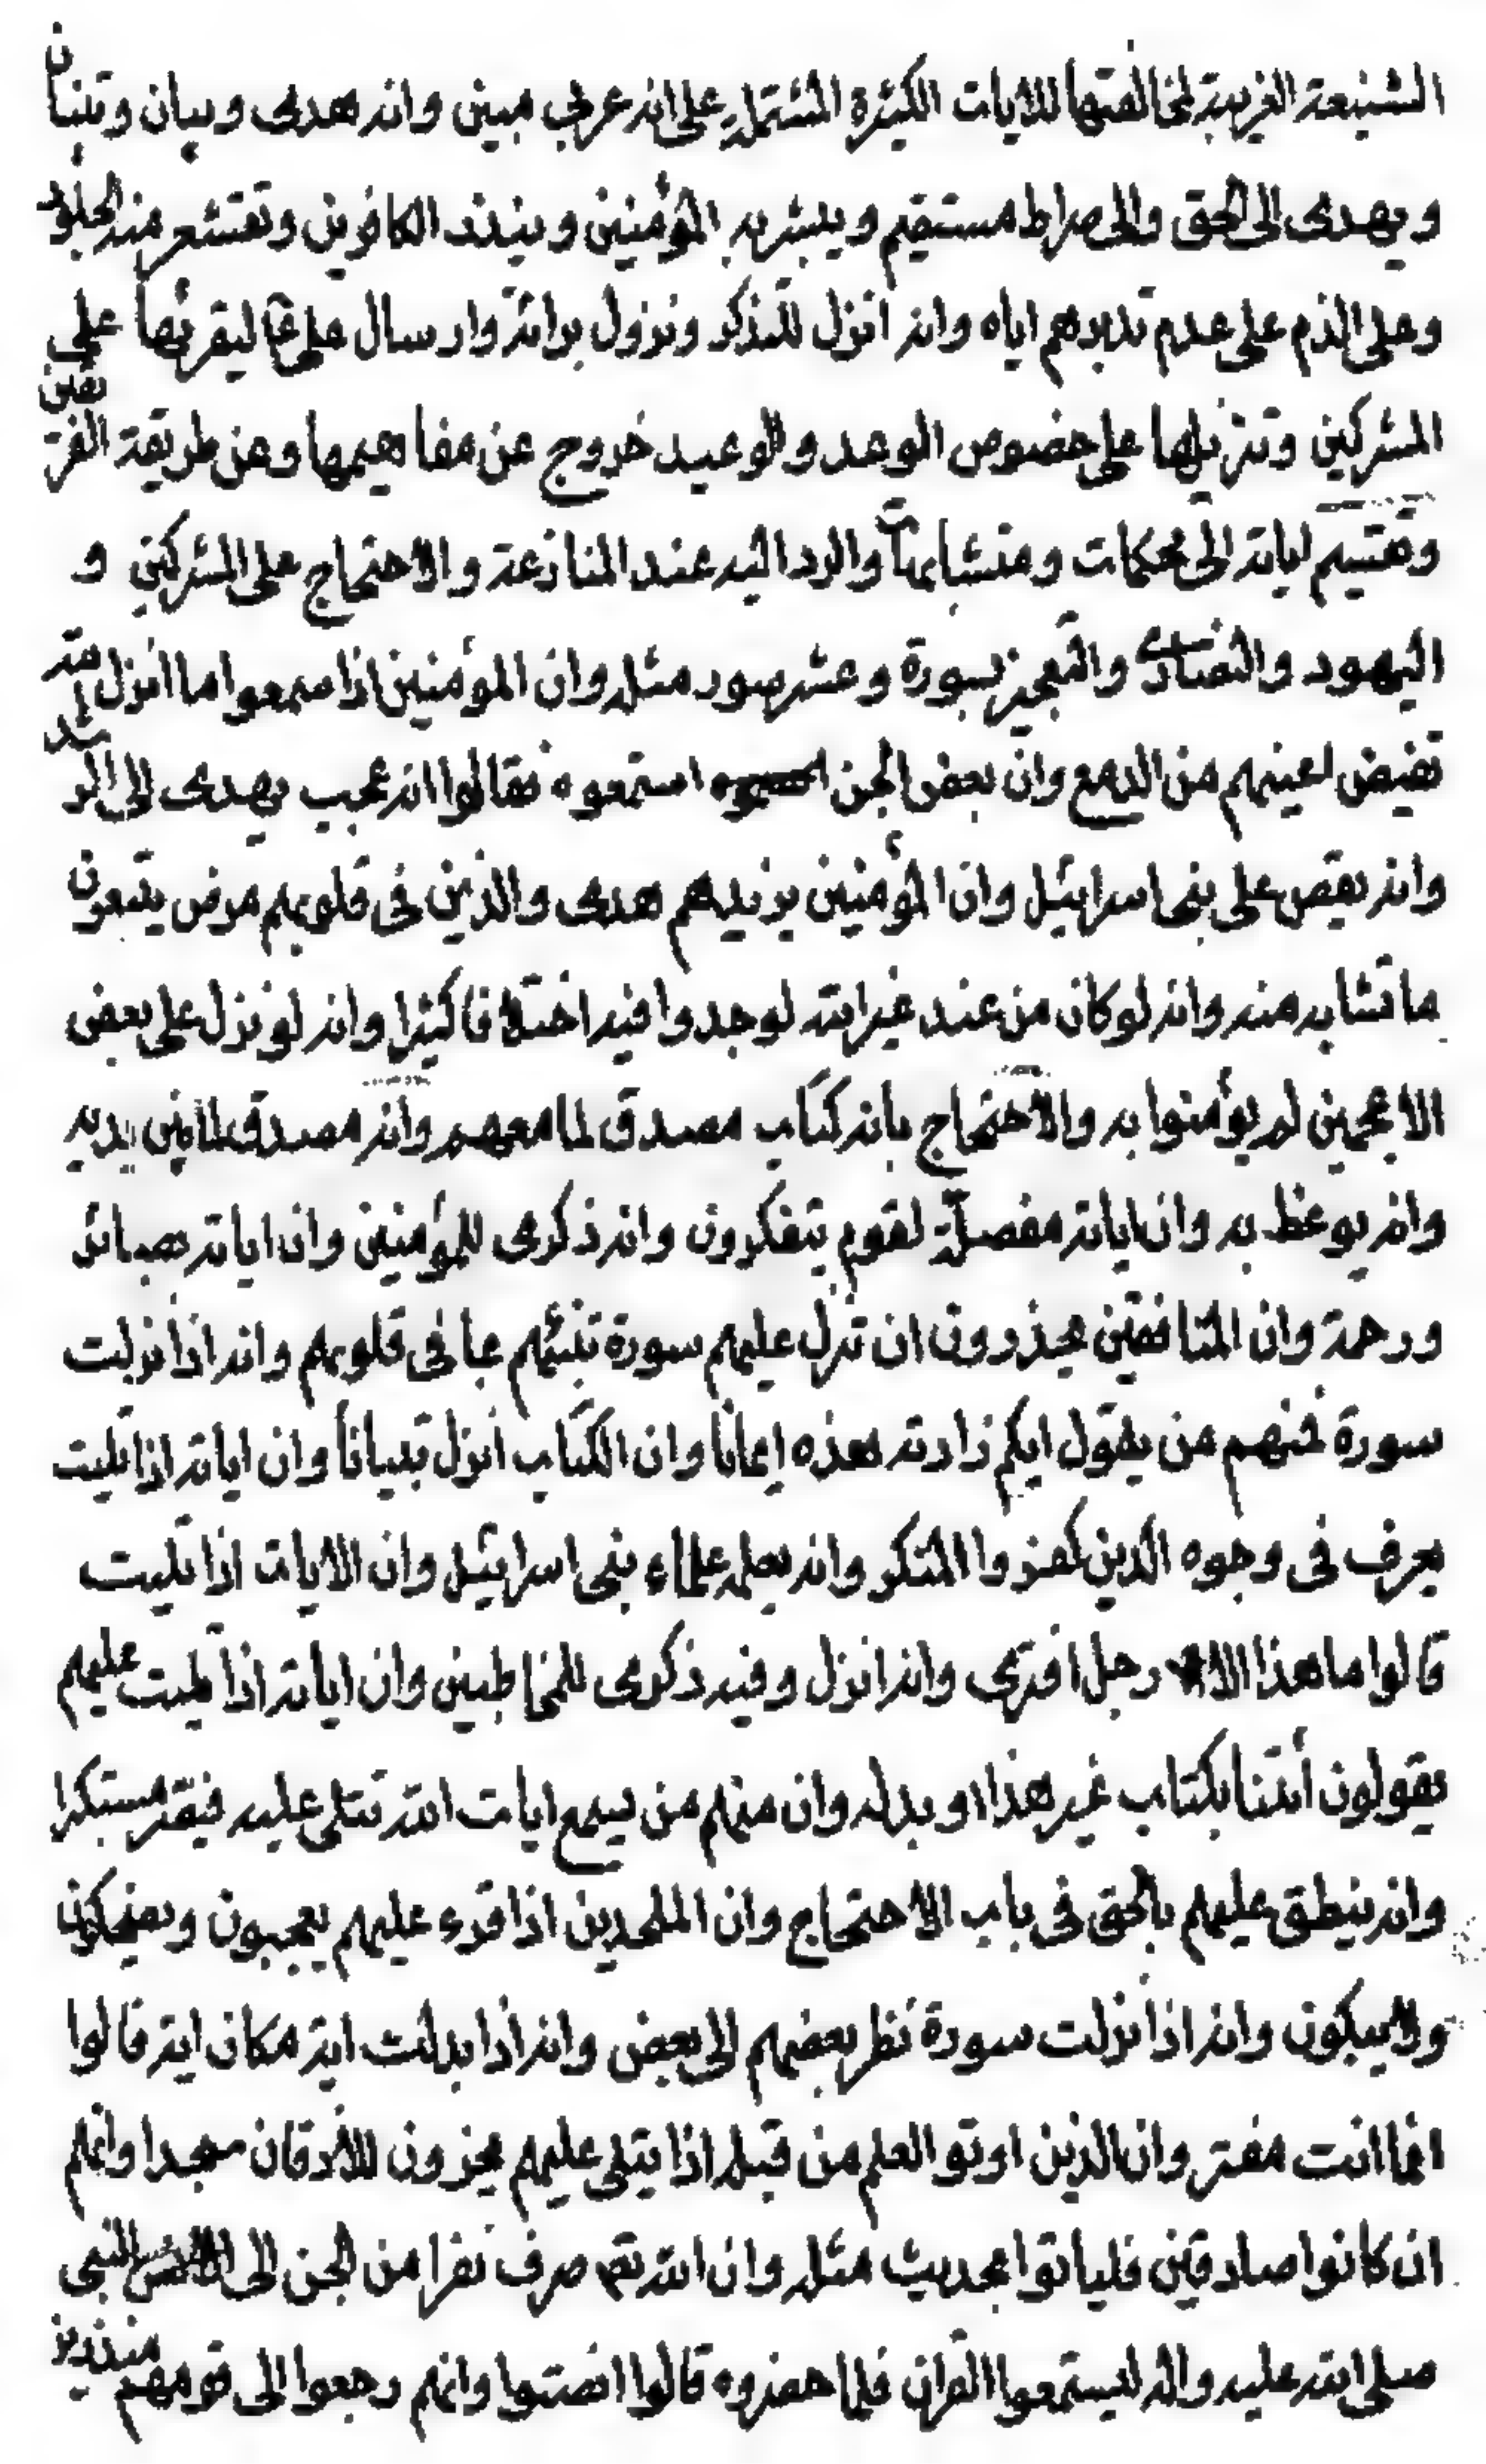 الشنيعة الغريبة لمخالفتها للايات الكثيرة المشتملة على انه عربي مبين وانه هدى وبيان وتبيان
ويهدى الى الحق والى صراط مستقيم ويبشر به المؤمنين وينذر الكافرين وتقشعر منه الجلود
وعلى الذم على عدم تدبرهم اياه وانه انزل للتذكر ونزول برائة وارسال على ع ليقرئها على
المشركين وتنزيلها على خصوص الوعد والوعيد خروج عن مفاهيمها وعن طريقة الفريقين
وتقسيم اياته الى محكمات ومتشابهات والرد اليه عند المنازعة والاحتجاج على المشركين و
اليهود والنصارى والتعجيز بسورة وعشر سور مثله وان المؤمنين اذا سمعوا ما انزل الله
تفيض اعينهم من الدمع وان بعض الجن استمعوه فقالوا انه عجب يهدى الى الرشد
وانه يقص على بنى اسرائيل وان المؤمنين يزيدهم هدى والذين فى قلوبهم مرض يتبعون
ما تشابه منه وانه لو كان من عند غير الله لوجدوا فيه اختلافا كثيرا وانه لو نزل على بعض
الاعجمين لم يؤمنوا به والاحتجاج بانه كتاب مصدق لما معهم وانه مصدق لما بين يديه
وانه يوعظ به وان اياته مفصلة لقوم يتفكرون وانه ذكرى للمؤمنين وان اياته بصائر
ورحمة وان المنافقين يحذرون ان تنزل عليهم سورة تنبئهم بما فى قلوبهم وانه اذا نزلت
سورة فمنهم من يقول ايكم زادته هذه ايمانا وان الكتاب انزل تبيانا وان اياته اذا تليت
يعرف فى وجوه الذين كفروا المنكر وانه يعلمه علماء بنى اسرائيل وان الايات اذا تليت
قالوا ما هذا الا رجل افترى وانه انزل وفيه ذكرى للمخاطبين وان اياته اذا تليت عليهم
يقولون أئتنا بكتاب غير هذا او بدله وان منهم من يسمع ايات الله تتلى عليه فيصر مستكبرا
وانه ينطق عليهم بالحق فى باب الاحتجاج وان الملحدين اذا قرء عليهم يعجبون ويضحكون
ولا يبكون وانه اذا نزلت سورة نظر بعضهم الى بعض وانه اذا بدلت اية مكان اية قالوا
انما انت مفتر وان الذين اوتوا العلم من قبله اذا يتلى عليهم يخرون للاذقان سجدا وانهم
ان كانوا صادقين فلياتوا بحديث مثله وان الله تعم صرف نفرا من الجن الى النبى
صلى الله عليه واله ليستمعوا القران فلما حضروه قالوا انصتوا وانهم رجعوا الى قومهم منذرين